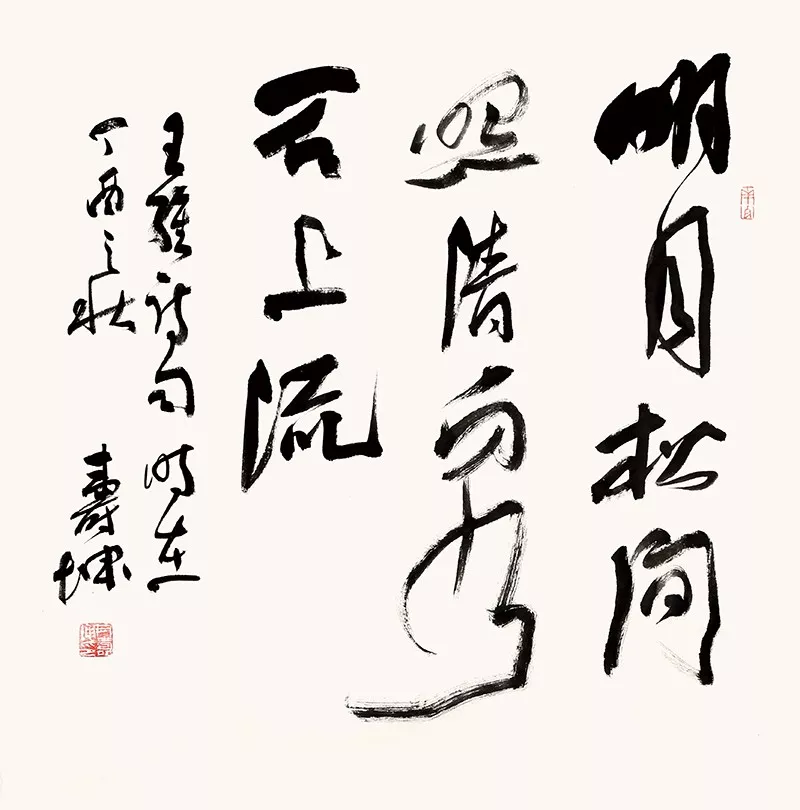 明月松间
照清泉
石上流
王維诗句 时在
丁酉之秋 壽坤